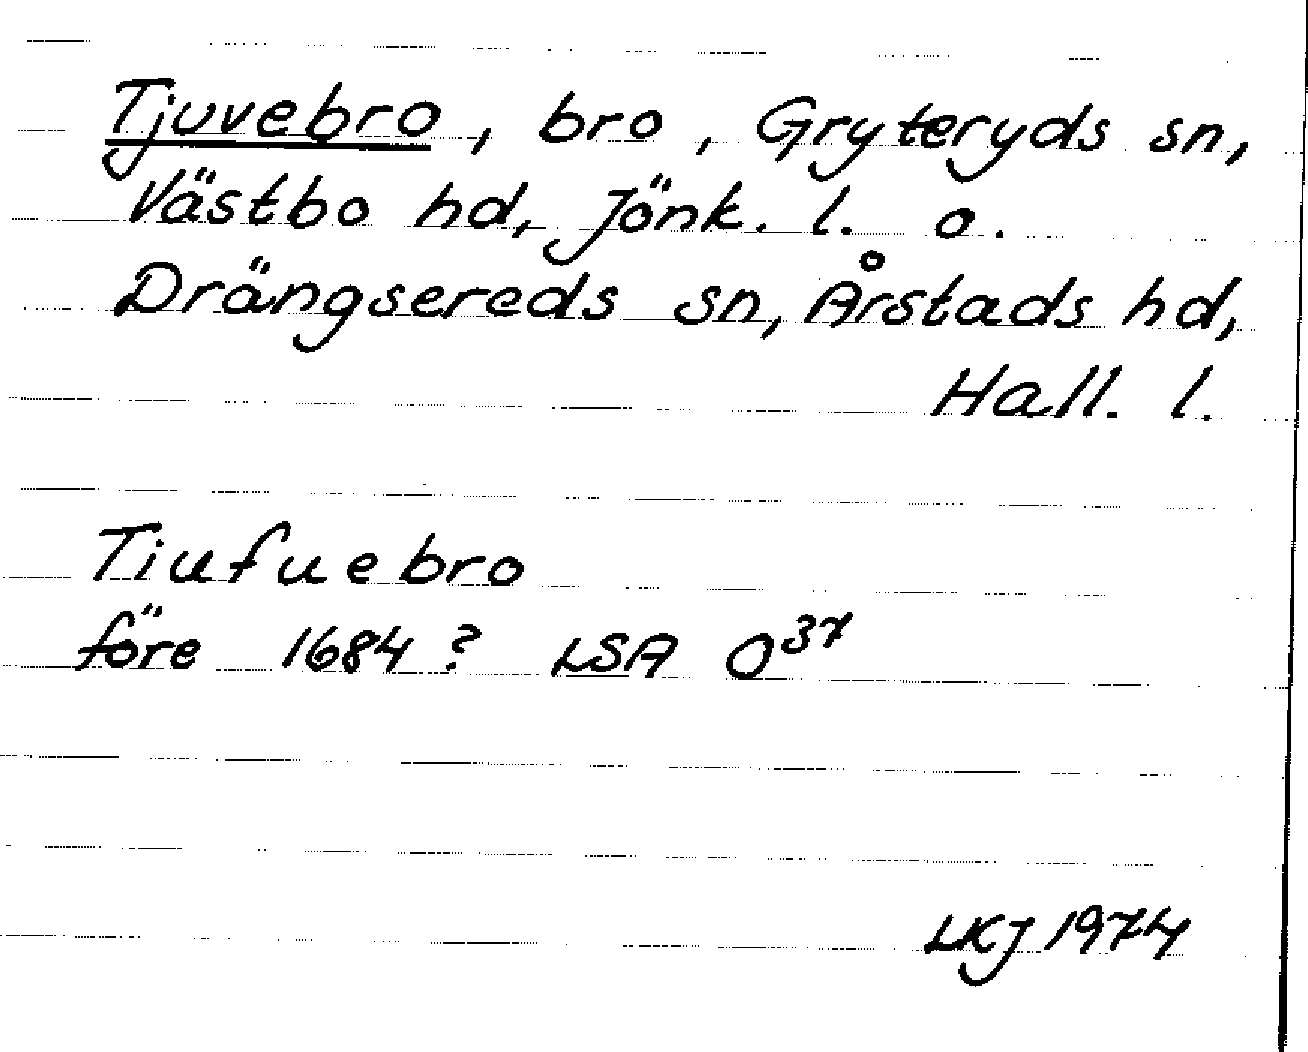 Tjuvebro, bro, Gryteryds sn,
Västbo hd, Jönk. l. o.
Drängsereds sn, Årstads hd,
Hall. l.
Tiufuebro
före 1684? LSA O³⁷
LKJ 1974